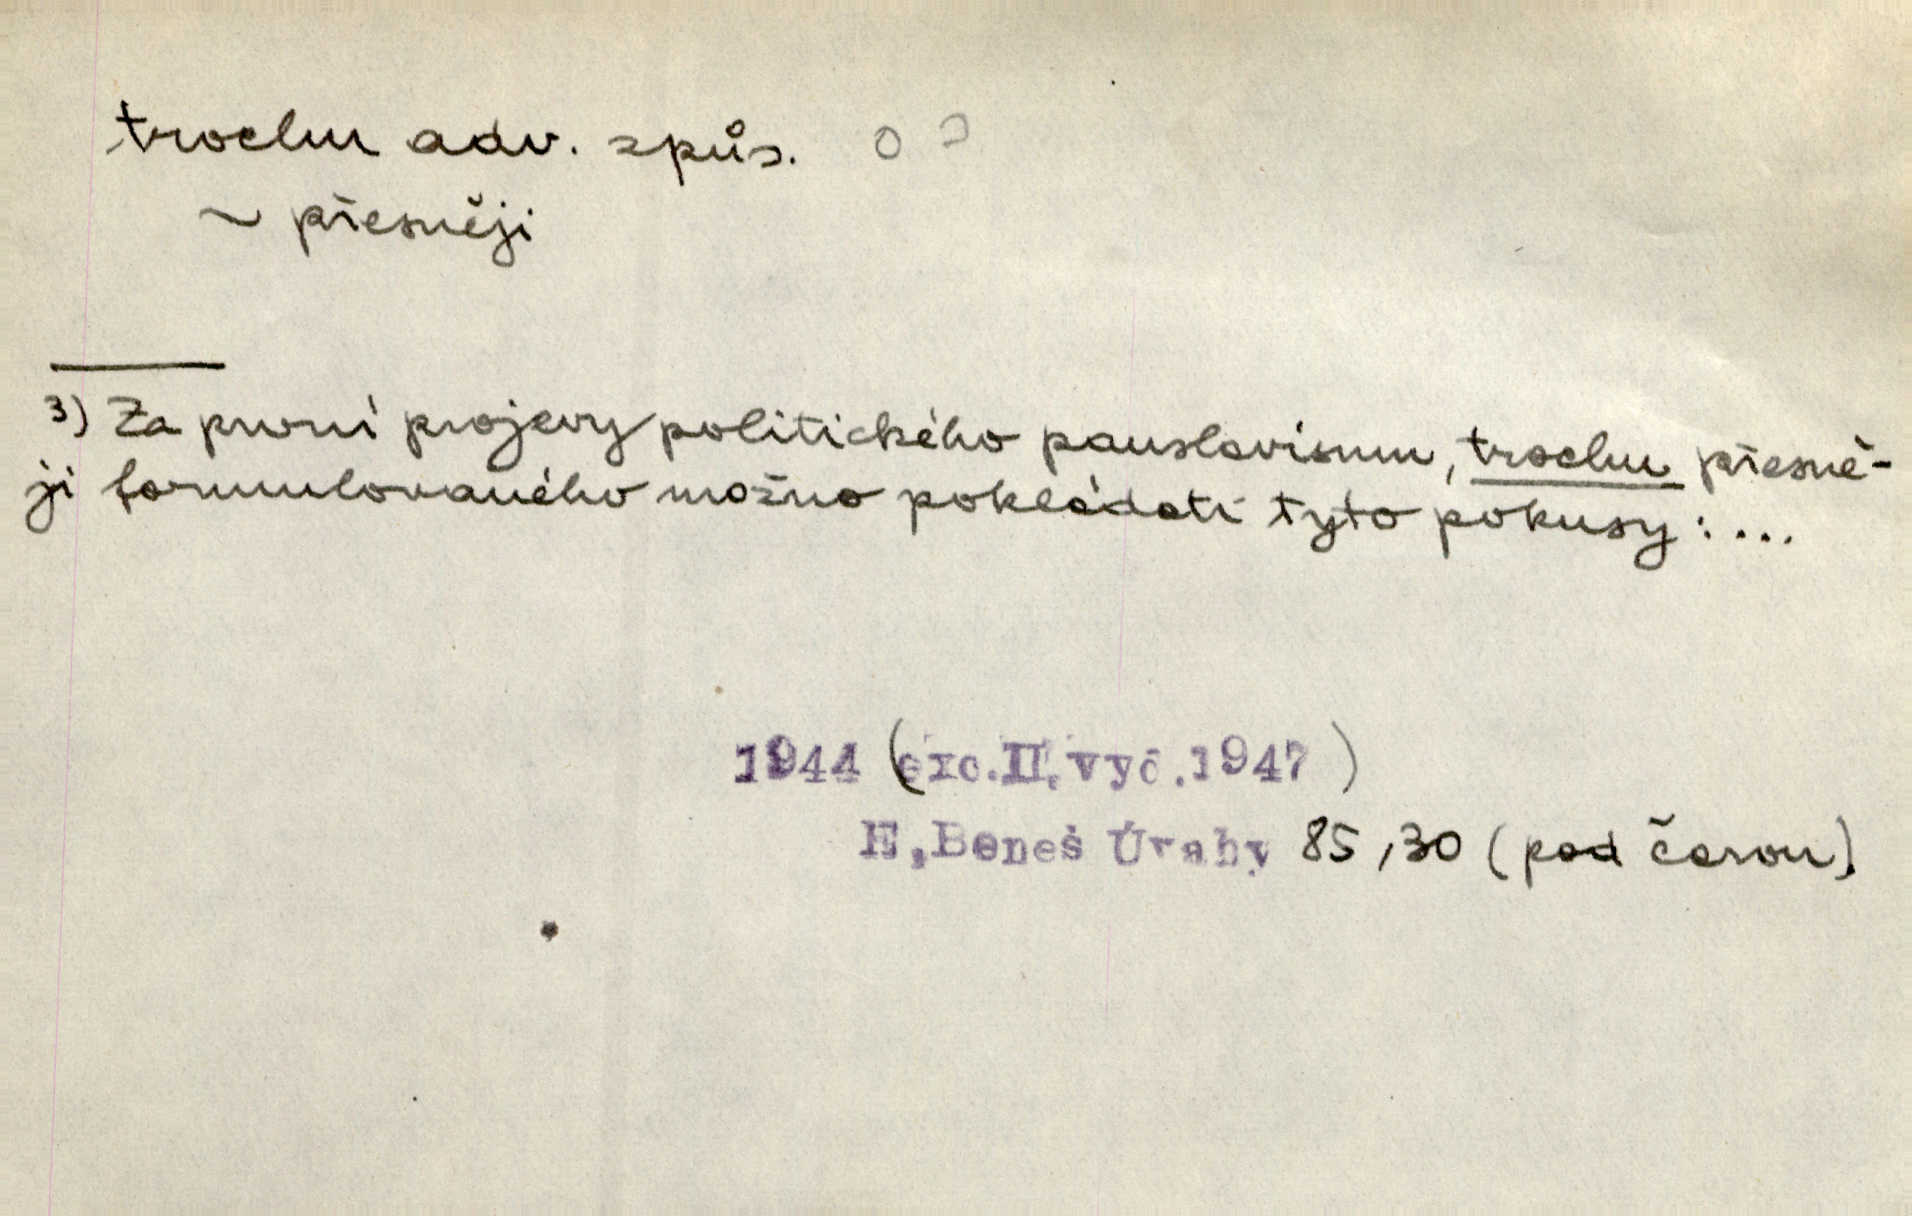 trochu adv. způs.
~ přesněji
3) Za první projevy politického panslavismu, trochu přesně-
ji formulovaného možno pokládati tyto pokusy: ...
1944 (exc. II. vyd. 1947)
E. Beneš Úvahy 85,30 (pod čarou).